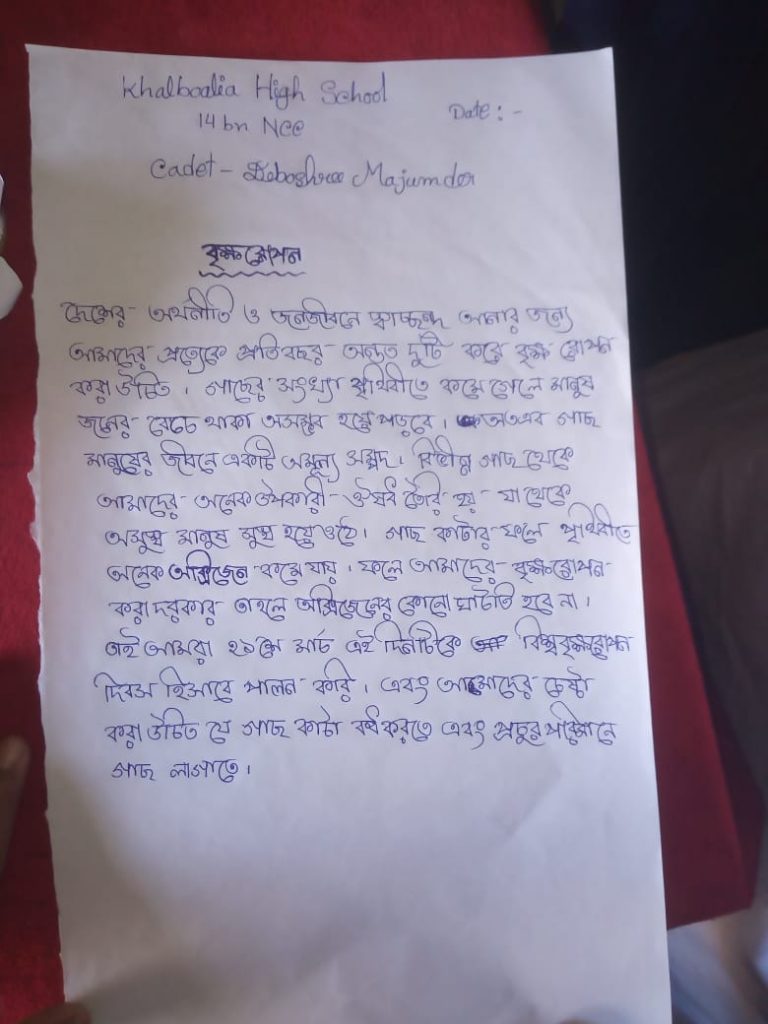 Khalboalia High School
Date :-
14 bn NCC
Cadet - Deboshree Majumder
বৃক্ষরোপন
দেশের অর্থনীতি ও জনজীবনে স্বাচ্ছন্দ আনার জন্য
আমাদের প্রত্যেকে প্রতিবছর অন্তত দুটি করে বৃক্ষ রোপন
করা উচিত । গাছের সংখ্যা পৃথিবীতে কমে গেলে মানুষ
জনের বেচে থাকা অসম্ভব হয়ে পড়বে । অতএব গাছ
মানুষের জীবনে একটি অমূল্য সম্পদ । বিভিন্ন গাছ থেকে
আমাদের অনেক উপকারী ঔষধ তৈরি হয় যা থেকে
অসুস্থ মানুষ সুস্থ হয়ে ওঠে । গাছ কাটার ফলে পৃথিবীতে
অনেক অক্সিজেন কমে যায় । ফলে আমাদের বৃক্ষরোপন
করা দরকার তাহলে অক্সিজেনের কোনো ঘাটতি হবে না ।
তাই আমরা ২১শে মার্চ এই দিনটিকে বিশ্ব বৃক্ষরোপন
দিবস হিসাবে পালন করি । এবং আমাদের চেষ্টা
করা উচিত যে গাছ কাটা বন্ধ করতে এবং প্রচুর পরিমানে
গাছ লাগাতে ।